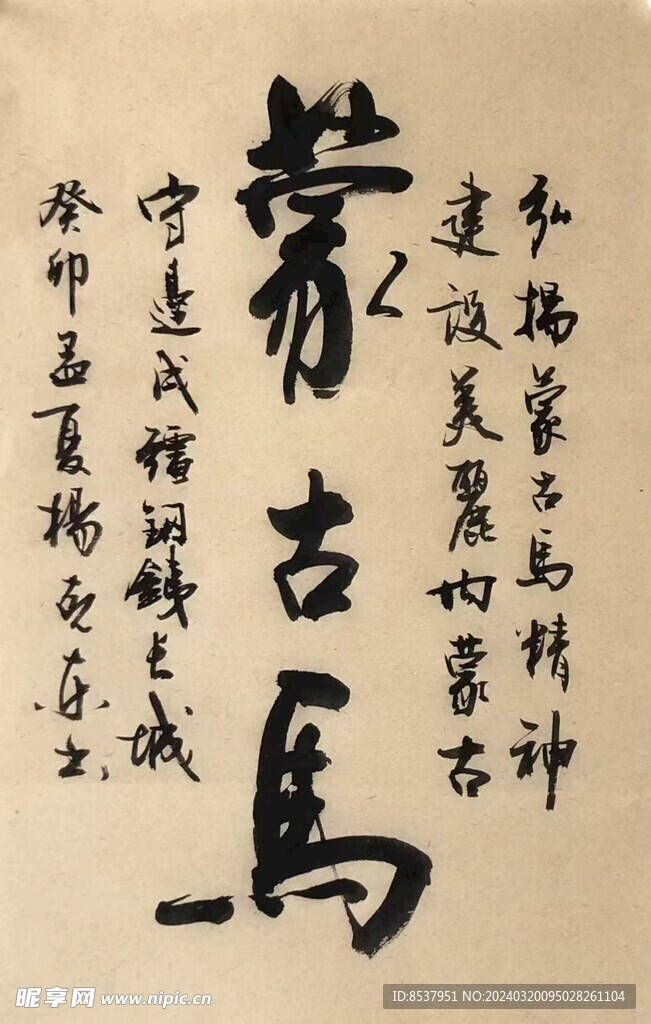 弘揚蒙古馬精神
建設美麗内蒙古
蒙古馬
守邊戍疆鋼鐵长城
癸卯孟夏楊克东书
昵享网 www.nipic.cn
ID:8537951 NO:20240320095028261104